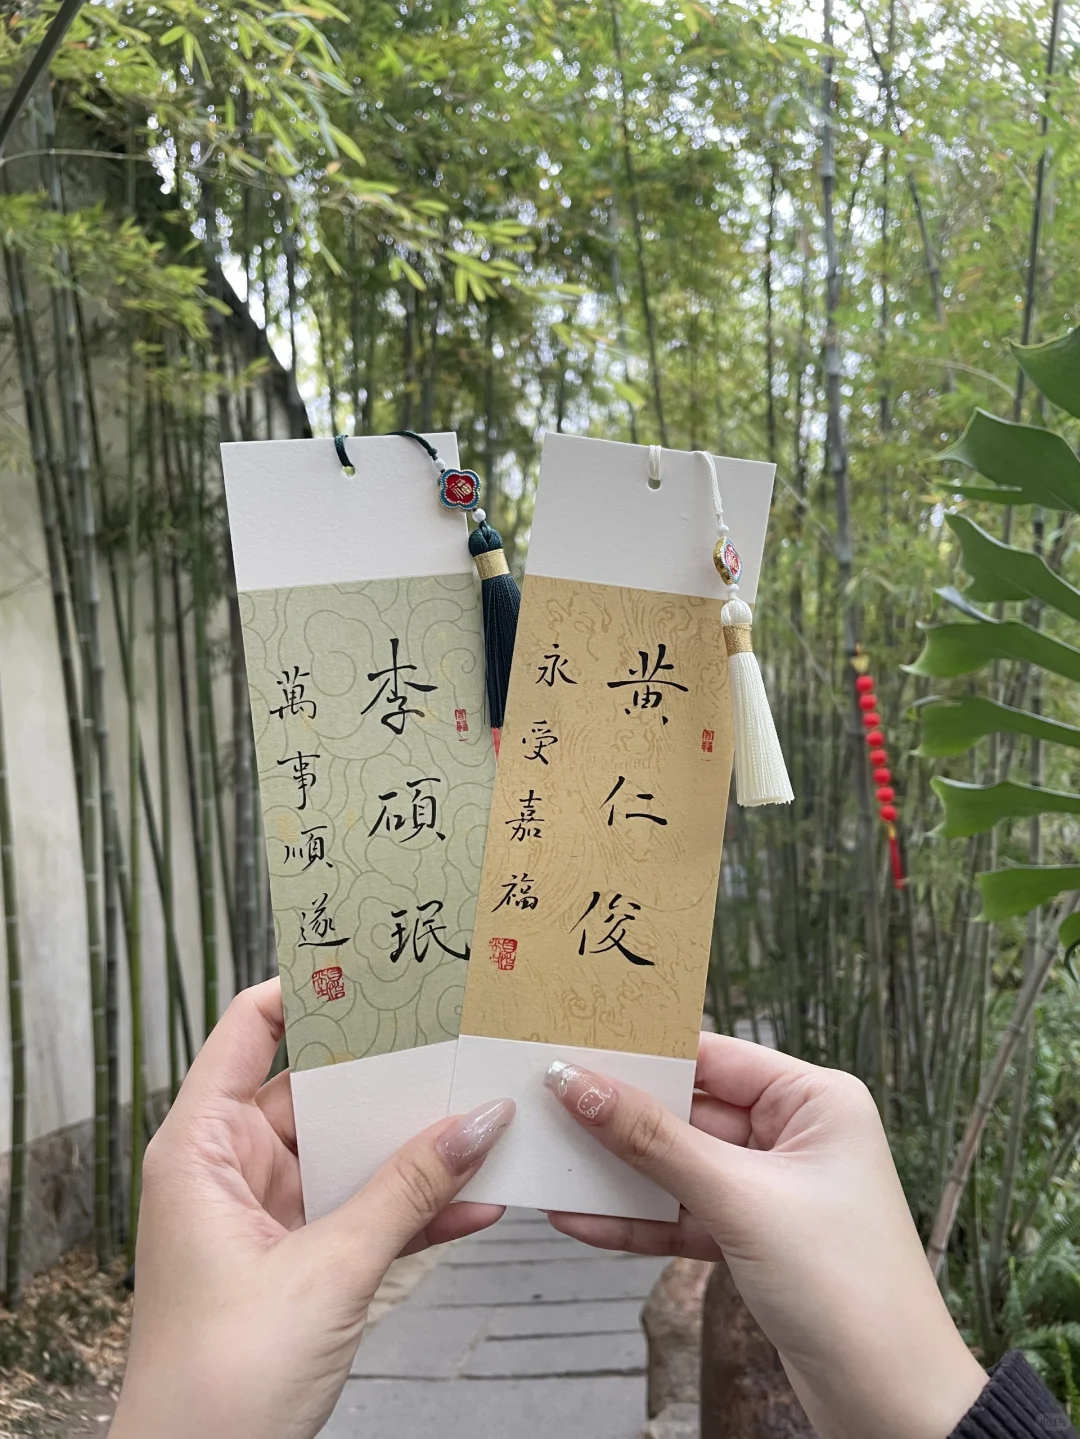 李碩珉
萬事順遂
黄仁俊
永受嘉福
福